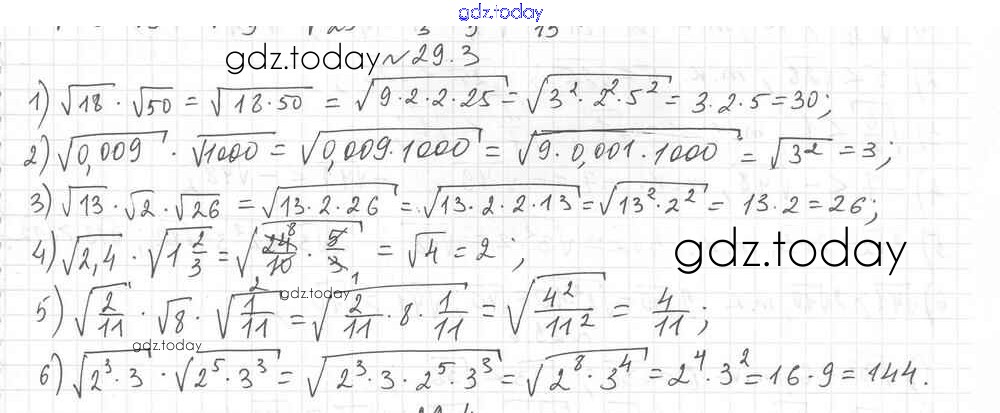 gdz.today
gdz.today №29.3
1) √18 · √50 = √(18·50) = √(9·2·2·25) = √(3²·2²·5²) = 3·2·5 = 30;
2) √0,009 · √1000 = √(0,009·1000) = √(9·0,001·1000) = √3² = 3;
3) √13 · √2 · √26 = √(13·2·26) = √(13·2·2·13) = √(13²·2²) = 13·2 = 26;
4) √2,4 · √(1 2/3) = √(24/10 · 5/3) = √4 = 2;
gdz.today
5) √(2/11) · √8 · √(1/11) = √(2/11 · 8 · 1/11) = √(4²/11²) = 4/11;
gdz.today
gdz.today
6) √(2³·3) · √(2⁵·3³) = √(2³·3·2⁵·3³) = √(2⁸·3⁴) = 2⁴·3² = 16·9 = 144.